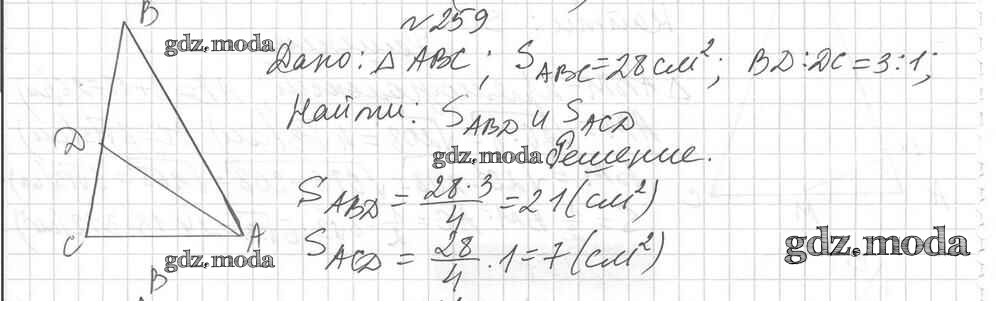 №259
B
gdz.moda
Дано: △ ABC; S_ABC = 28 см²; BD:DC = 3:1;
Найти: S_ABD и S_ACD
D
gdz.moda Решение.
S_ABD = (28 · 3)/4 = 21 (см²)
C A
S_ACD = 28/4 · 1 = 7 (см²)
gdz.moda
gdz.moda
B